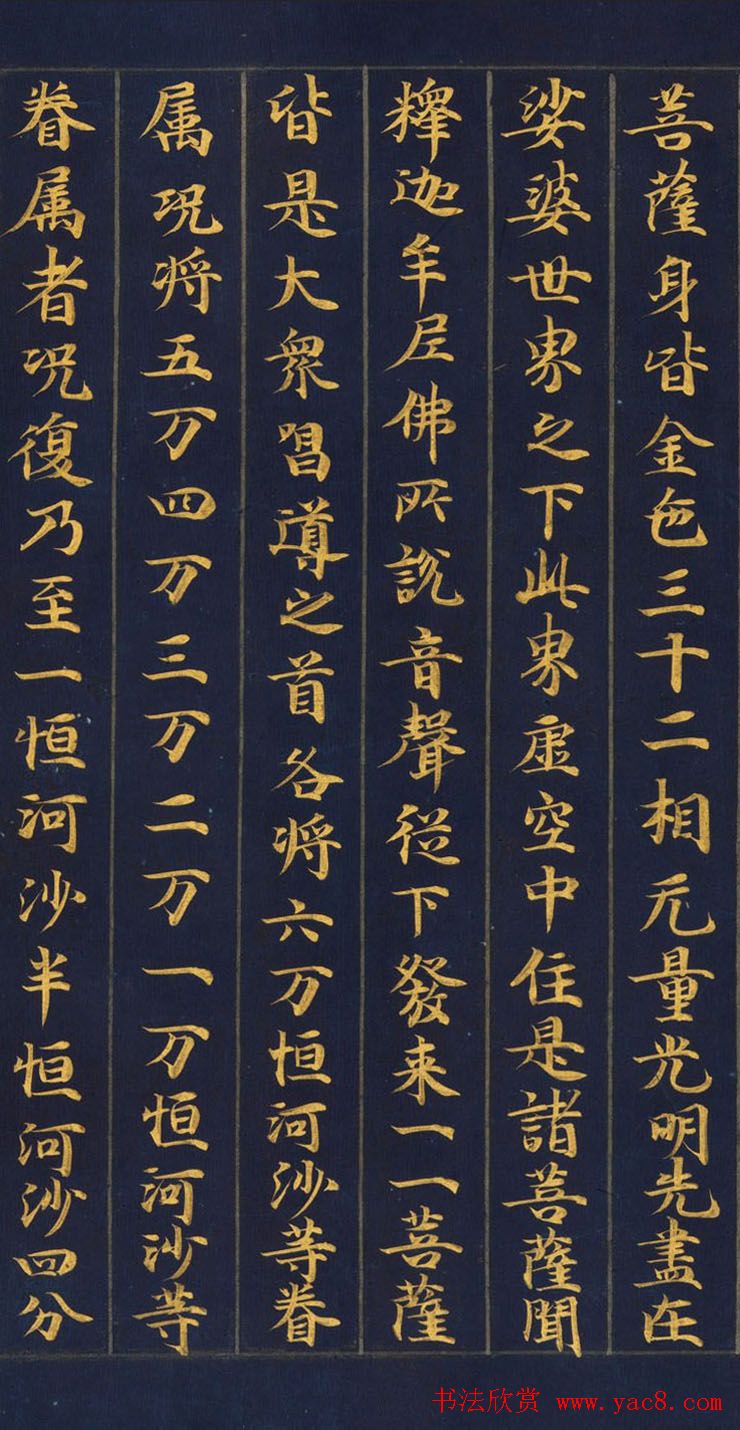 菩薩身皆金色三十二相无量光明先盡在
娑婆世界之下此界虛空中住是諸菩薩聞
釋迦牟尼佛所說音聲從下發来一一菩薩
皆是大眾唱導之首各將六万恒河沙等眷
属况将五万四万三万二万一万恒河沙等
眷属者况復乃至一恒河沙半恒河沙四分
书法欣赏 www.yac8.com